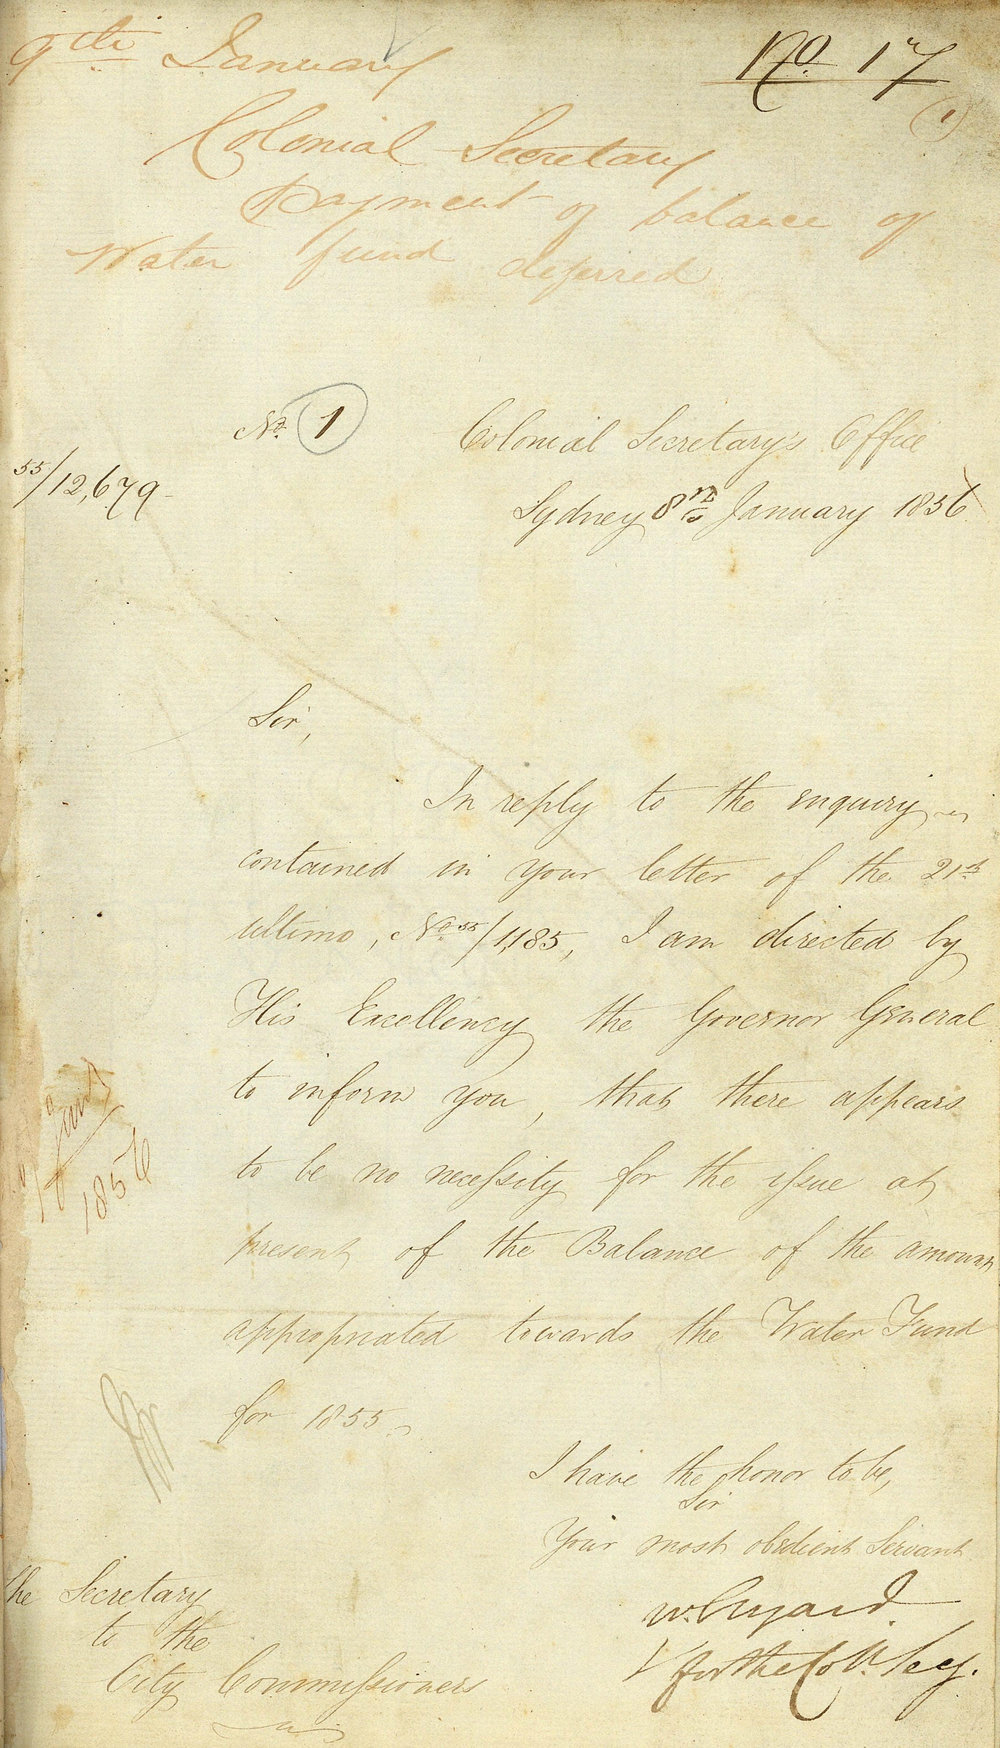 9th January
No 17
(1)
Colonial Secretary
Payment of balance of
Water fund deferred
No. 1
55/12,679
Colonial Secretary's Office
Sydney 8th January 1856
Sir,
In reply to the enquiry
contained in your letter of the 21st
ultimo, No 55/1185, I am directed by
His Excellency the Governor General
to inform you, that there appears
to be no necessity for the issue at
present of the Balance of the amount
appropriated towards the Water Fund
for 1855.
9 Jany
1856
I have the honor to be,
Sir
Your most obedient Servant
W. Elyard
for the Col. Secy.
The Secretary
to the
City Commissioners